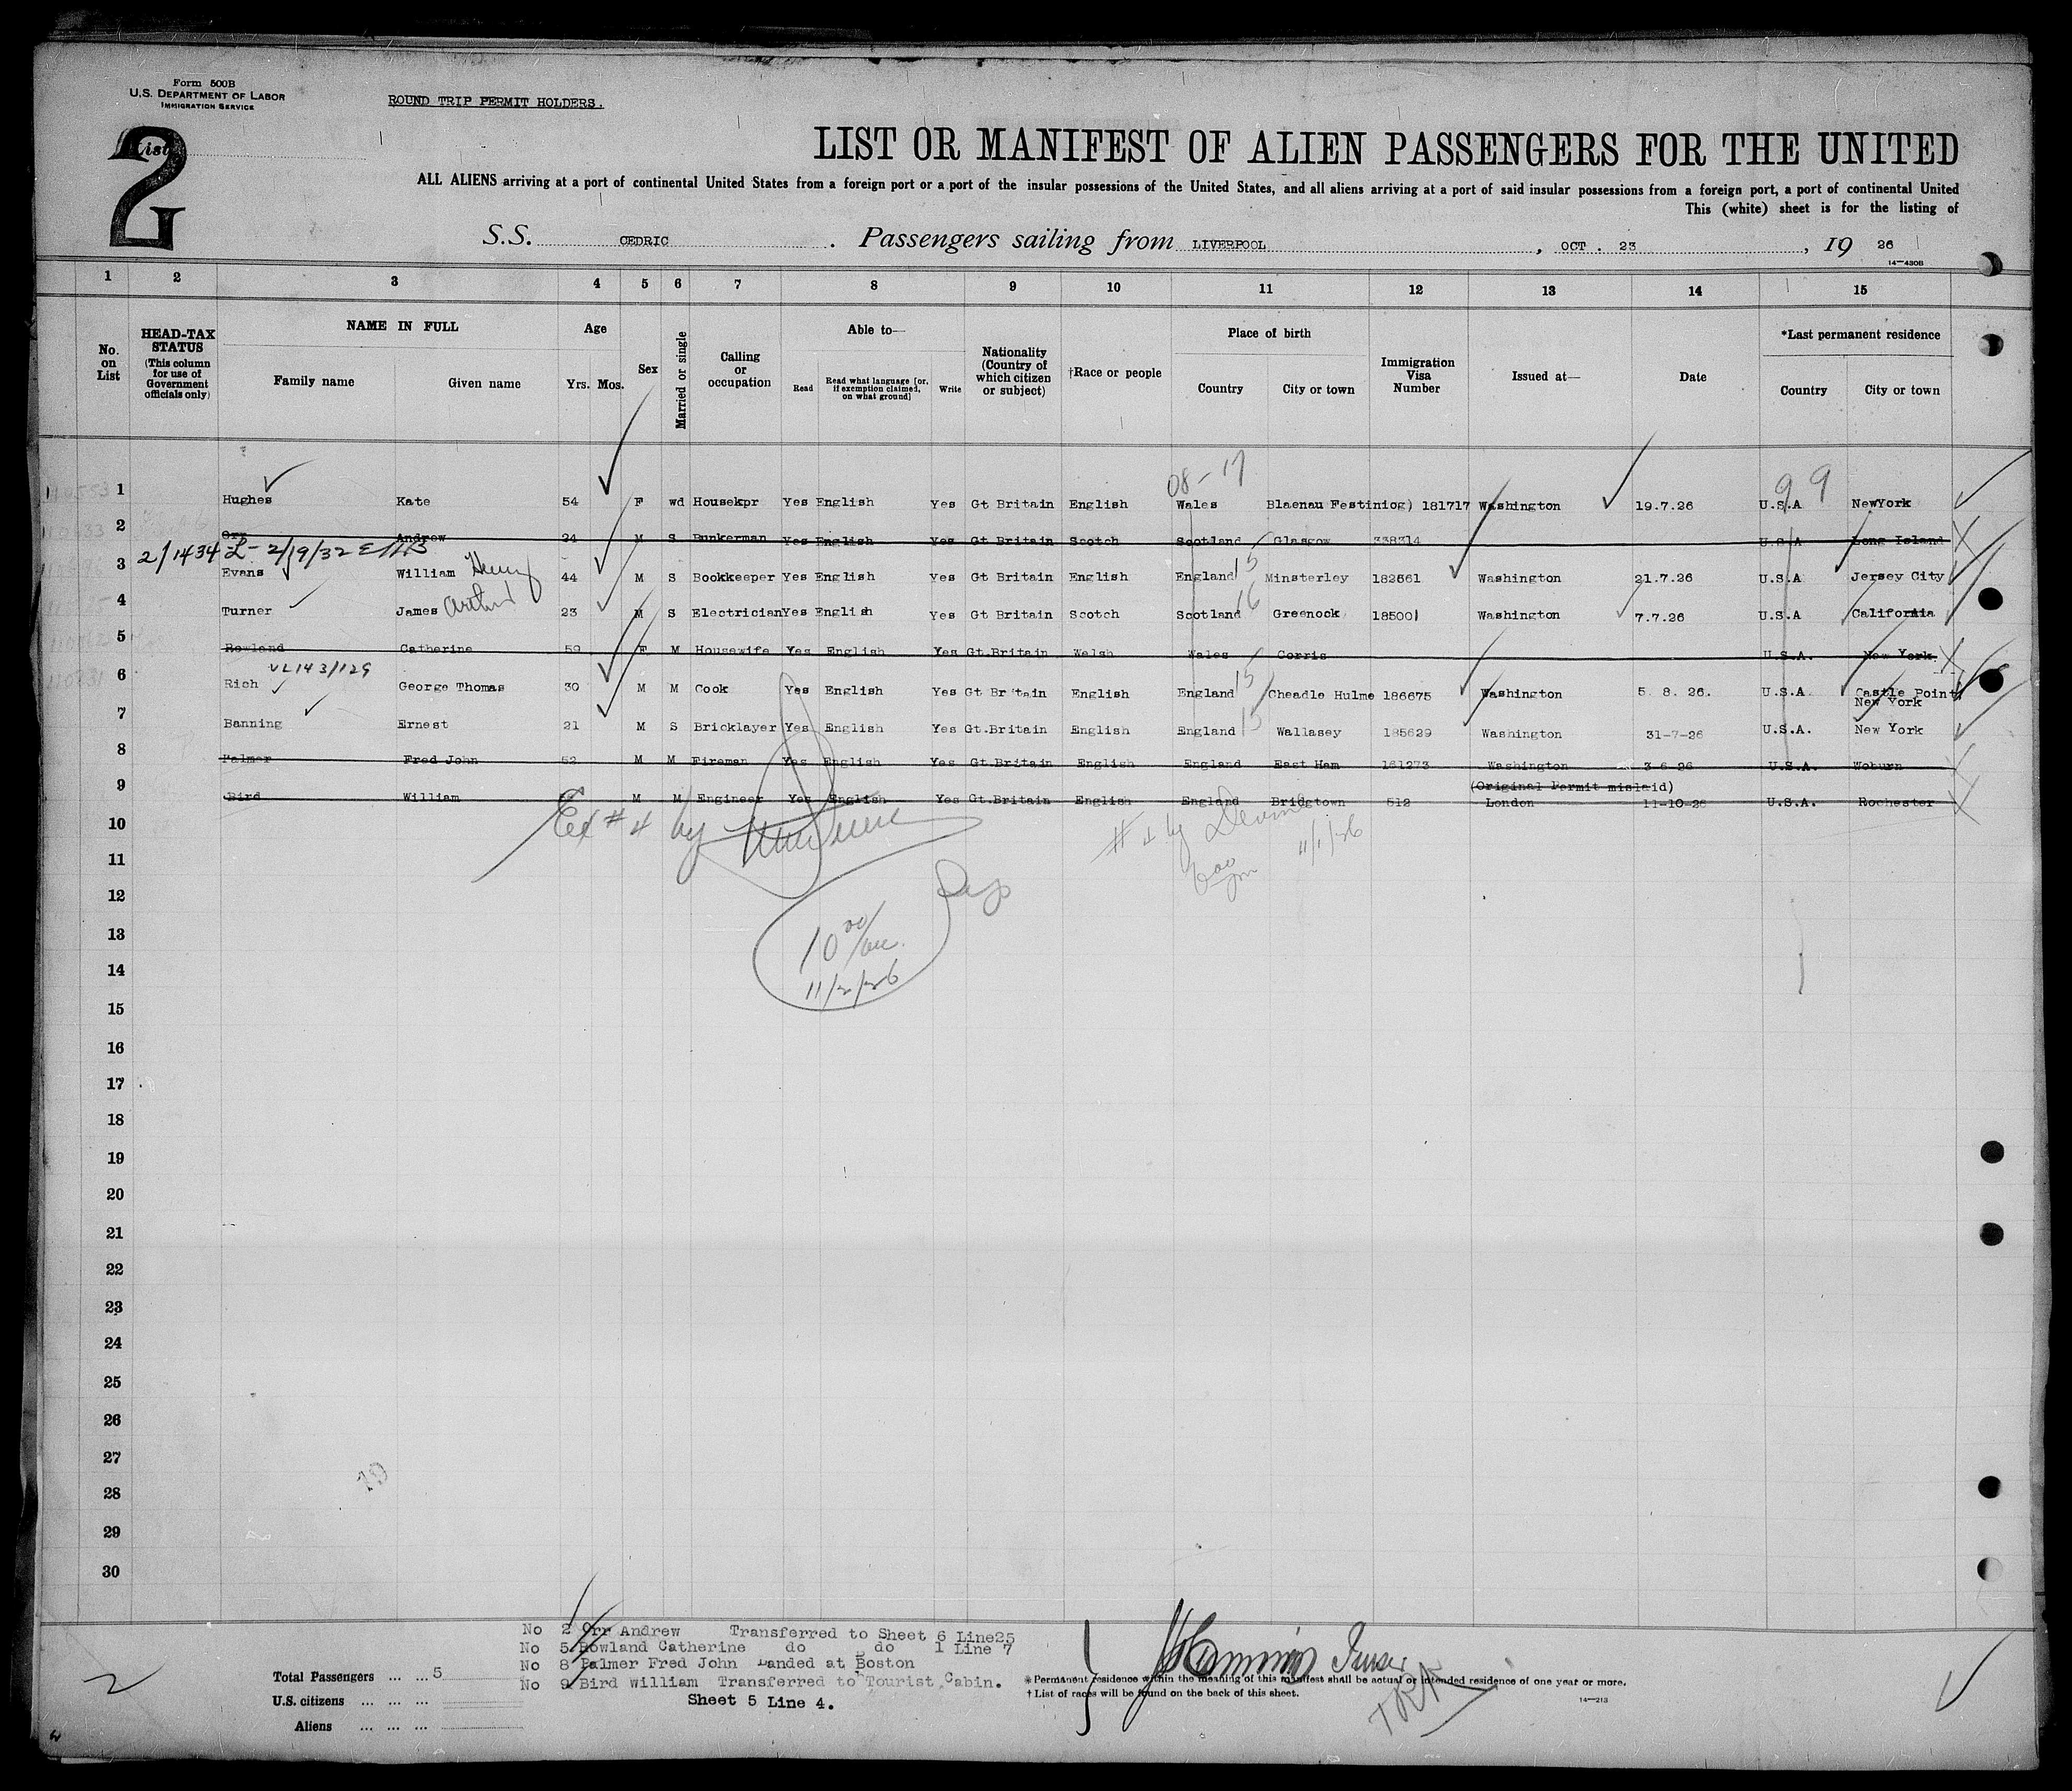 Form 500B
U.S. DEPARTMENT OF LABOR
IMMIGRATION SERVICE
ROUND TRIP PERMIT HOLDERS.
List
2
LIST OR MANIFEST OF ALIEN PASSENGERS FOR THE UNITED
ALL ALIENS arriving at a port of continental United States from a foreign port or a port of the insular possessions of the United States, and all aliens arriving at a port of said insular possessions from a foreign port, a port of continental United
This (white) sheet is for the listing of
S.S. CEDRIC. Passengers sailing from LIVERPOOL, OCT. 23, 19 26
14—430B
1 2 3 4 5 6 7 8 9 10 11 12 13 14 15
No. on List
HEAD-TAX STATUS (This column for use of Government officials only)
NAME IN FULL
Family name Given name
Age
Yrs. Mos.
Sex
Married or single
Calling or occupation
Able to—
Read Read what language [or, if exemption claimed, on what ground] Write
Nationality (Country of which citizen or subject)
†Race or people
Place of birth
Country City or town
Immigration Visa Number
Issued at—
Date
*Last permanent residence
Country City or town
08-17 99
1 Hughes Kate 54 F wd Housekpr Yes English Yes Gt Britain English Wales Blaenau Festiniog) 181717 Washington 19.7.26 U.S.A NewYork
2 Orr Andrew 24 M S Bunkerman Yes English Yes Gt Britain Scotch Scotland Glasgow 338314 U.S.A Long Island
2/1434 L- 2/19/32
3 Evans William Henry 44 M S Bookkeeper Yes English Yes Gt Britain English England 15 Minsterley 182661 Washington 21.7.26 U.S.A Jersey City
4 Turner James Arthur 23 M S Electrician Yes English Yes Gt Britain Scotch Scotland 16 Greenock 18500 Washington 7.7.26 U.S.A California
5 Rowland Catherine 59 F M Housewife Yes English Yes Gt.Britain Welsh Wales Corris U.S.A. New York
VL143/129
6 Rich George Thomas 30 M M Cook Yes English Yes Gt Britain English England 15 Cheadle Hulme 186675 Washington 5. 8. 26. U.S.A Castle Point,
New York
7 Banning Ernest 21 M S Bricklayer Yes English Yes Gt.Britain English England 15 Wallasey 185629 Washington 31-7-26 U.S.A. New York
8 Palmer Fred John 52 M M Fireman Yes English Yes Gt.Britain English England East Ham 161273 Washington 3-6-26 U.S.A. Woburn
(Original Permit mislaid)
9 Bird William M M Engineer Yes English Yes Gt.Britain English England Bridgtown 512 London 11-10-26 U.S.A. Rochester
Ex # 4 by
# 4 by 11/1/26
10
11
12
13
10 00/
14
11/2/26
15
16
17
18
19
20
21
22
23
24
25
26
27
28
29
30
No 2 Orr Andrew Transferred to Sheet 6 Line25
No 5 Rowland Catherine do do 1 Line 7
No 8 Palmer Fred John Landed at Boston
No 9 Bird William Transferred to Tourist Cabin.
Sheet 5 Line 4.
Total Passengers ... ... 5
U.S. citizens ... ... ...
Aliens ... ... ...
* Permanent residence within the meaning of this manifest shall be actual or intended residence of one year or more.
† List of races will be found on the back of this sheet.
14—213
2